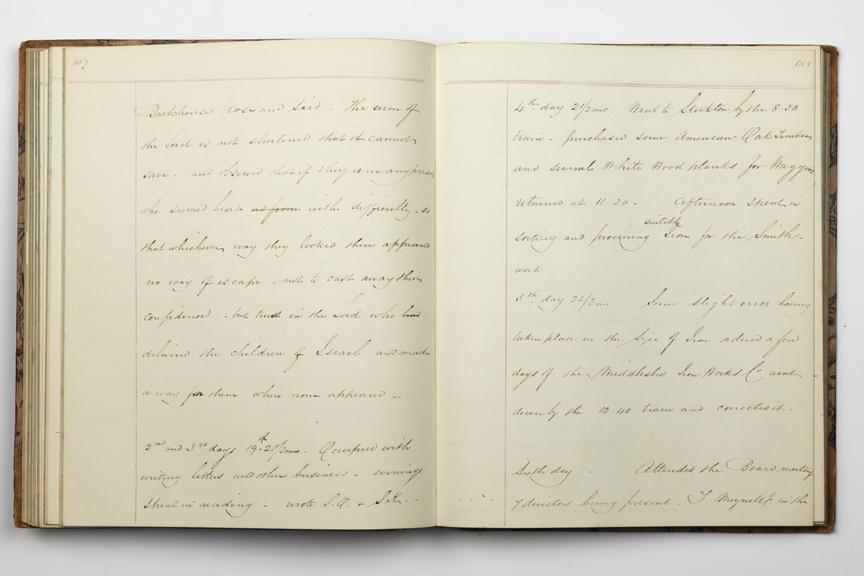 167
Backhouse rose and said - The arm of
the Lord is not shortened that it cannot
save. and observed that if they were any present
who seemed beset as from with difficulty. so
that whichever way they looked there appeared
no way of escape. not to cast away their
confidence. but trust in the Lord who had
delivered the children of Israel and made
a way for them when none appeared -
2nd and 3rd days 19th-20/2mo. Occupied with
writing letters and other business - evening
spent in reading - wrote
168
4th day 21/2mo. Went to Stockton by the 8.30
train - purchased some American Oak Timber
and several White Wood planks for Waggons,
returned at 11.30 - Afternoon spent in
suitable
sorting and procuring Iron for the Smiths-
work
5th day 22/2mo Some slight error having
taken place in the Size of Iron ordered a few
days of the Middlesbro Iron Works Co went
down by the 12 40 train and corrected it.
Sixth day - Attended the Board meeting
7 directors being present - T. Meynell in the